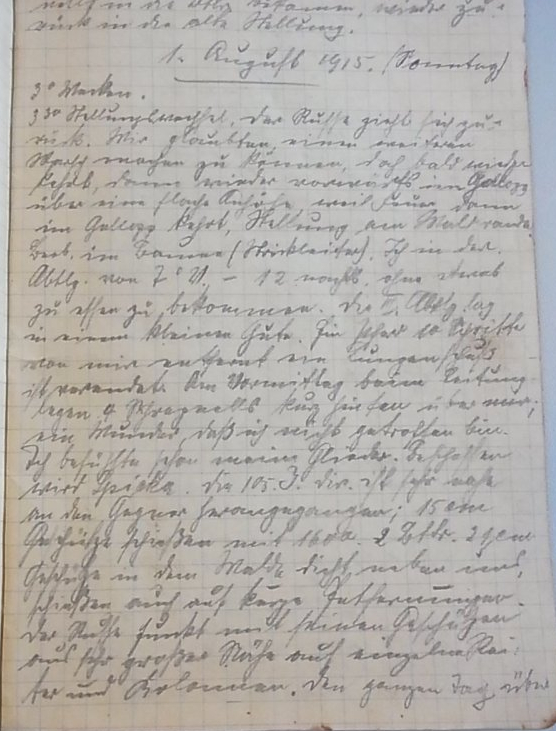 rück in die alte Stellung.
1. August 1915. (Sonntag)
3° Wecken.
3³⁰ Stellungswechsel. Der Russe zieht sich zu-
rück. Wir glaubten, einen weiteren
Marsch machen zu können, doch bald wieder
kehrt, dann wieder vorwärts im Galopp
über eine flache Anhöhe, weil Feuer, dann
im Galopp kehrt, Stellung am Waldrande.
Beob. im Baume (Strickleiter). Ich in der
Abtlg. von 7° V. – 12 nachts, ohne etwas
zu essen zu bekommen. Die I. Abtlg. lag
in einem kleinen Gute. Ein 10 Schritte
von mir entfernt ein Lungenschuß
ist verendet. Am Vormittag beim Leitung-
legen 4 Schrapnells kurz hinten über mir,
ein Wunder, daß ich nicht getroffen bin.
Ich befühlte schon meine Glieder. Beschossen
wird. Die 105. I. Div. ist sehr nahe
an den Gegner herangegangen; 15 cm
Geschütze schießen mit 1600. 2 Bttr. 21 cm
Geschütze in dem Walde dicht neben uns,
schießen auch auf kurze Entfernungen.
Der Russe funkt mit seinen Geschützen
aus sehr großer Nähe auf einzelne Rei-
ter und Kolonnen. Den ganzen Tag über